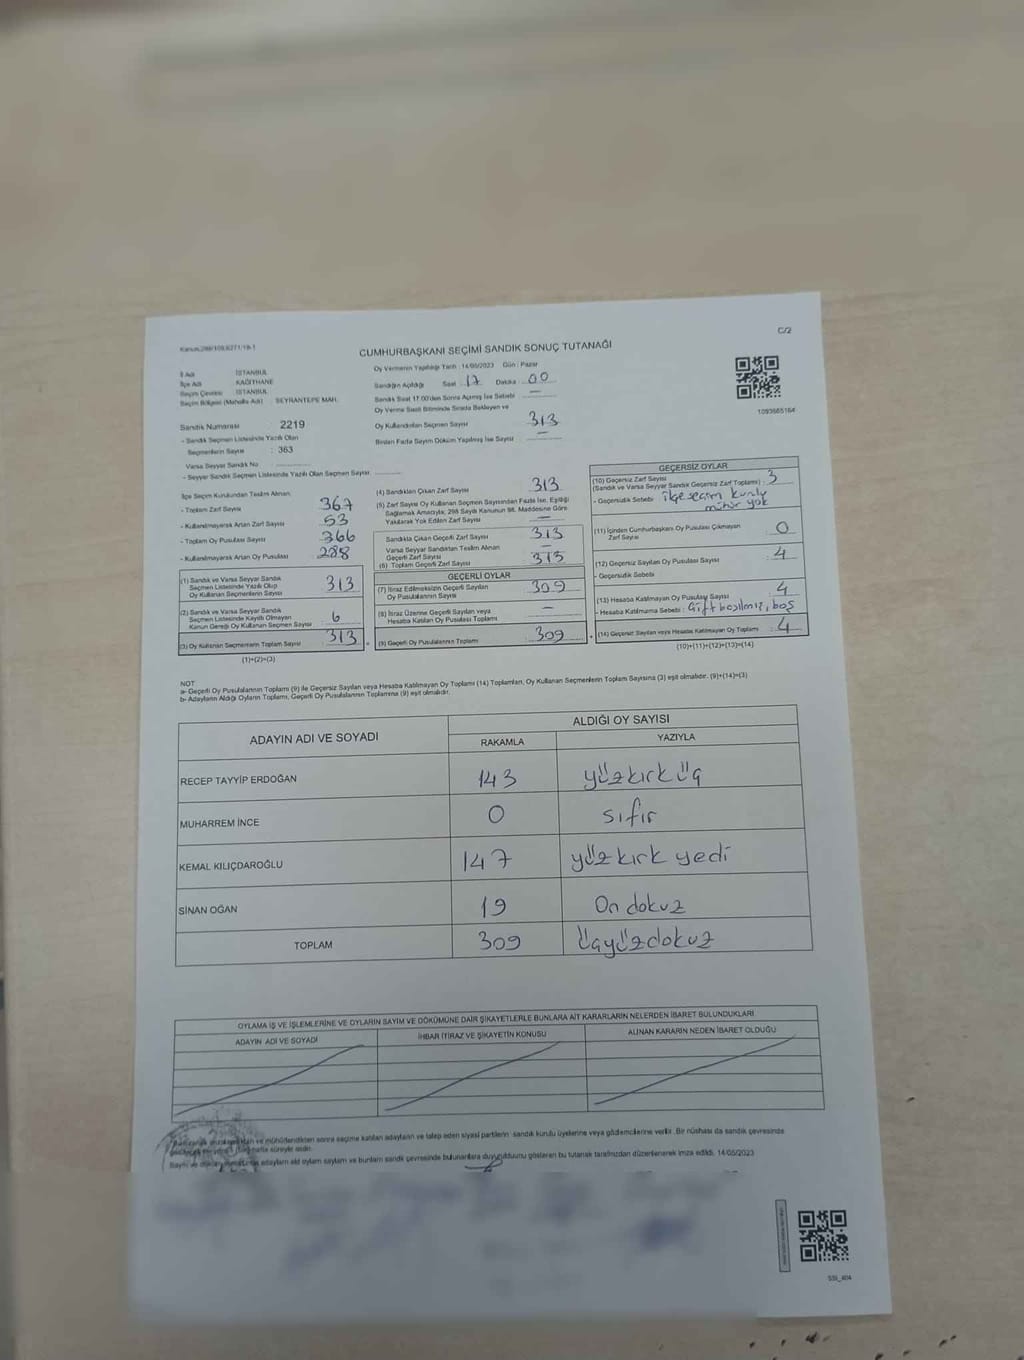 Kanun:298/109,6271/18-1
C/2
CUMHURBAŞKANI SEÇİMİ SANDIK SONUÇ TUTANAĞI
İl Adı : İSTANBUL
İlçe Adı : KAĞITHANE
Seçim Çevresi : İSTANBUL
Seçim Bölgesi (Mahalle Adı) : SEYRANTEPE MAH.
Sandık Numarası : 2219
- Sandık Seçmen Listesinde Yazılı Olan
Seçmenlerin Sayısı : 363
Varsa Seyyar Sandık No
- Seyyar Sandık Seçmen Listesinde Yazılı Olan Seçmen Sayısı
Oy Vermenin Yapıldığı Tarih : 14/05/2023 Gün : Pazar
Sandığın Açıldığı Saat : 17 Dakika : 00
Sandık Saat 17.00'den Sonra Açılmış İse Sebebi : —
Oy Verme Saati Bitiminde Sırada Bekleyen ve
Oy Kullandırılan Seçmen Sayısı : 313
Birden Fazla Sayım Döküm Yapılmış İse Sayısı : —
1093665164
İlçe Seçim Kurulundan Teslim Alınan;
- Toplam Zarf Sayısı : 367
- Kullanılmayarak Artan Zarf Sayısı : 53
- Toplam Oy Pusulası Sayısı : 366
- Kullanılmayarak Artan Oy Pusulası : 288
(1) Sandık ve Varsa Seyyar Sandık
Seçmen Listesinde Yazılı Olup
Oy Kullanan Seçmenlerin Sayısı : 313
(2) Sandık ve Varsa Seyyar Sandık
Seçmen Listesinde Kayıtlı Olmayan
Kanun Gereği Oy Kullanan Seçmen Sayısı : 6
(3) Oy Kullanan Seçmenlerin Toplam Sayısı : 313
(1)+(2)=(3)
(4) Sandıktan Çıkan Zarf Sayısı : 313
(5) Zarf Sayısı Oy Kullanan Seçmen Sayısından Fazla İse, Eşitliği
Sağlamak Amacıyla; 298 Sayılı Kanunun 98. Maddesine Göre
Yakılarak Yok Edilen Zarf Sayısı : —
Sandıkta Çıkan Geçerli Zarf Sayısı : 313
Varsa Seyyar Sandıktan Teslim Alınan
Geçerli Zarf Sayısı : —
(6) Toplam Geçerli Zarf Sayısı : 313
GEÇERLİ OYLAR
(7) İtiraz Edilmeksizin Geçerli Sayılan
Oy Pusulalarının Sayısı : 309
(8) İtiraz Üzerine Geçerli Sayılan veya
Hesaba Katılan Oy Pusulası Toplamı : —
(9) Geçerli Oy Pusulalarının Toplamı : 309
GEÇERSİZ OYLAR
(10) Geçersiz Zarf Sayısı
(Sandık ve Varsa Seyyar Sandık Geçersiz Zarf Toplamı) : 3
- Geçersizlik Sebebi : ilçe seçim kurulu
mühür yok
(11) İçinden Cumhurbaşkanı Oy Pusulası Çıkmayan
Zarf Sayısı : 0
(12) Geçersiz Sayılan Oy Pusulası Sayısı : 4
- Geçersizlik Sebebi
(13) Hesaba Katılmayan Oy Pusulası Sayısı : 4
- Hesaba Katılmama Sebebi : Çift basılmış, boş
(14) Geçersiz Sayılan veya Hesaba Katılmayan Oy Toplamı : 4
(10)+(11)+(12)+(13)=(14)
NOT
a- Geçerli Oy Pusulalarının Toplamı (9) ile Geçersiz Sayılan veya Hesaba Katılmayan Oy Toplamı (14) Toplamları, Oy Kullanan Seçmenlerin Toplam Sayısına (3) eşit olmalıdır. (9)+(14)=(3)
b- Adayların Aldığı Oyların Toplamı, Geçerli Oy Pusulalarının Toplamına (9) eşit olmalıdır.
ADAYIN ADI VE SOYADI
ALDIĞI OY SAYISI
RAKAMLA YAZIYLA
RECEP TAYYİP ERDOĞAN 143 yüzkırk üç
MUHARREM İNCE 0 sıfır
KEMAL KILIÇDAROĞLU 147 yüzkırk yedi
SİNAN OĞAN 19 On dokuz
TOPLAM 309 Üçyüzdokuz
OYLAMA İŞ VE İŞLEMLERİNE VE OYLARIN SAYIM VE DÖKÜMÜNE DAİR ŞİKAYETLERLE BUNLARA AİT KARARLARIN NELERDEN İBARET BULUNDUKLARI
ADAYIN ADI VE SOYADI İHBAR İTİRAZ VE ŞİKAYETİN KONUSU ALINAN KARARIN NEDEN İBARET OLDUĞU
ve mühürlendikten sonra seçime katılan adayların ve talep eden siyasi partilerin sandık kurulu üyelerine veya gözlemcilerine verilir. Bir nüshası da sandık çevresinde
hafta süreyle asılır.
adayların aldı oyların sayısını ve bunların sandık çevresinde bulunanlara duyurulduğunu gösteren bu tutanak tarafımızdan düzenlenerek imza edildi. 14/05/2023
SSİ_404